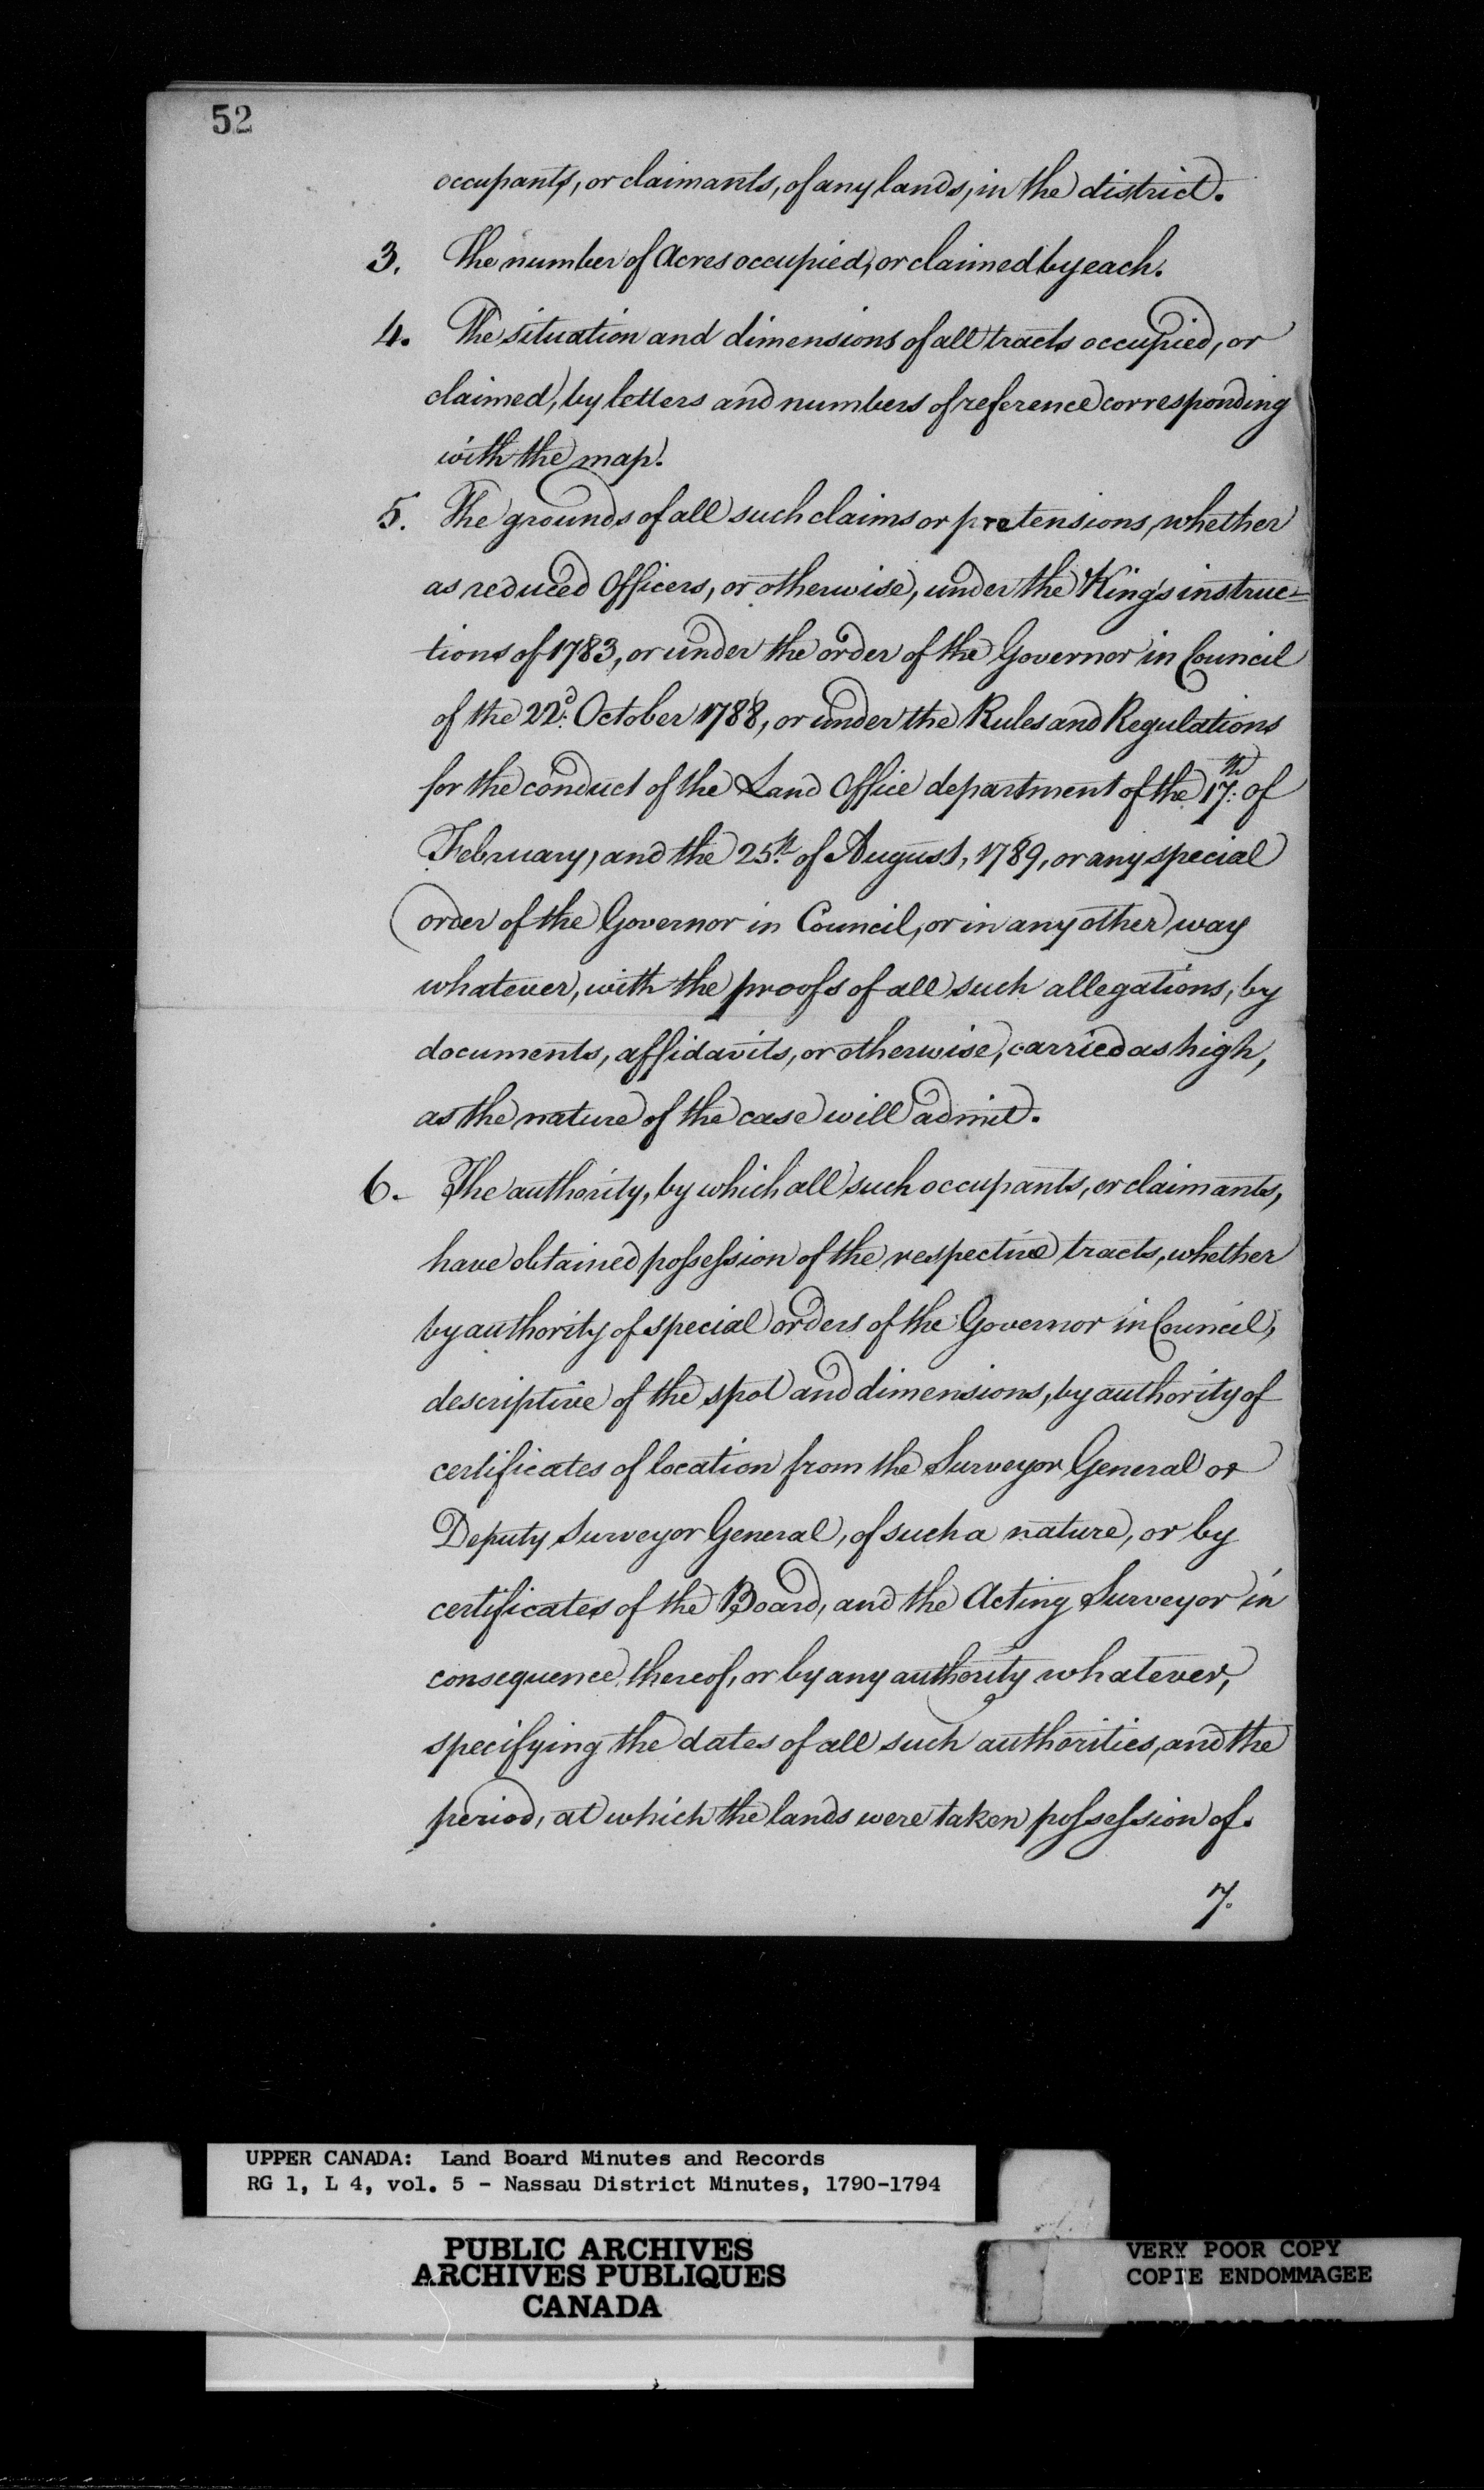 52
occupants, or claimants, of any lands, in the district.
3. The number of Acres occupied, or claimed by each.
4. The situation and dimensions of all tracts occupied, or
claimed, by letters and numbers of reference corresponding
with the map.
5. The grounds of all such claims or pretensions, whether
as reduced Officers, or otherwise, under the King's instruc=
tions of 1783, or under the order of the Governor in Council
of the 22d. October 1788, or under the Rules and Regulations
for the conduct of the Land Office department of the 17th: of
February, and the 25th. of August, 1789, or any special
order of the Governor in Council, or in any other way
whatever, with the proofs of all such allegations, by
documents, affidavits, or otherwise, carried as high,
as the nature of the case will admit.
6. The authority, by which all such occupants, or claimants,
have obtained possession of the respective tracts, whether
by authority of special orders of the Governor in Council,
descriptive of the spot and dimensions, by authority of
certificates of location from the Surveyor General or
Deputy Surveyor General, of such a nature, or by
certificates of the Board, and the Acting Surveyor in
consequence thereof, or by any authority whatever,
specifying the dates of all such authorities, and the
period, at which the lands were taken possession of.
7.
UPPER CANADA: Land Board Minutes and Records
RG 1, L 4, vol. 5 - Nassau District Minutes, 1790-1794
PUBLIC ARCHIVES
ARCHIVES PUBLIQUES
CANADA
VERY POOR COPY
COPIE ENDOMMAGEE
VERY POOR COPY